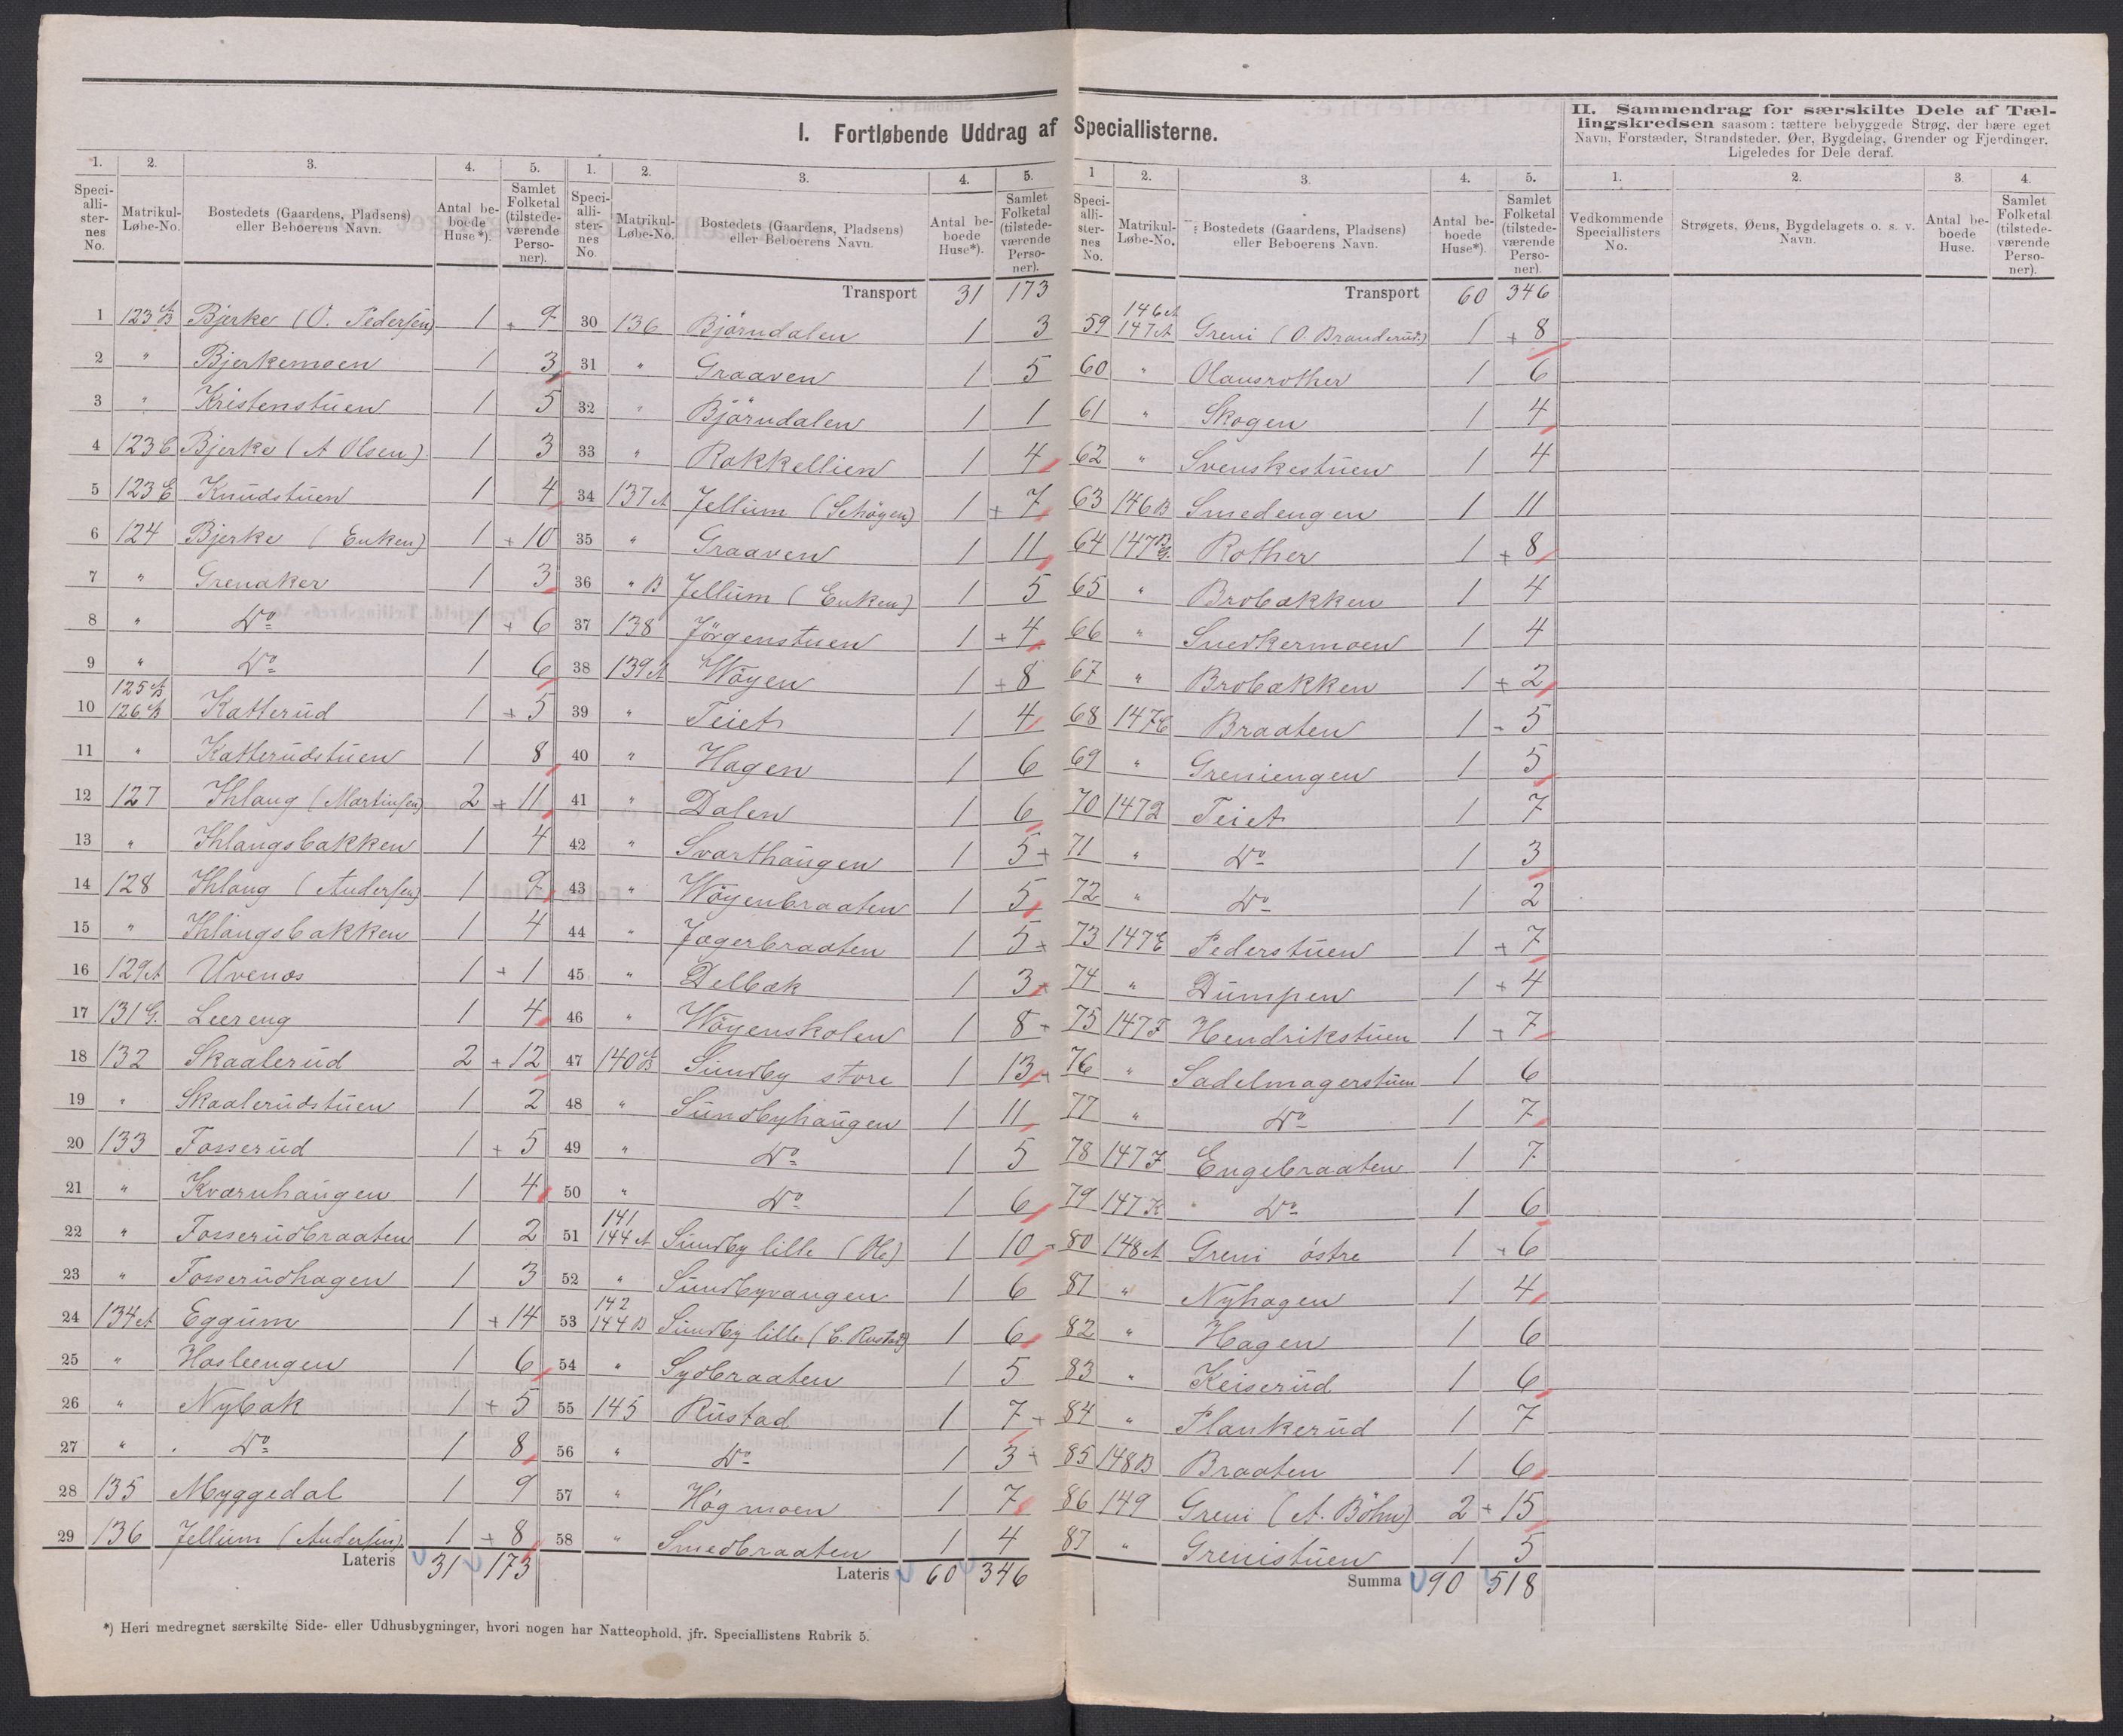 I. Fortløbende Uddrag af Speciallisterne.
II. Sammendrag for særskilte Dele af Tæl-
lingskredsen saasom: tættere bebyggede Strøg, der bære eget
Navn, Forstæder, Strandsteder, Øer, Bygdelag, Grender og Fjerdinger.
Ligeledes for Dele deraf.
1. 2. 3. 4. 5.
Speciallisternes No. Matrikul-Løbe-No. Bostedets (Gaardens, Pladsens) eller Beboerens Navn. Antal beboede Huse*). Samlet Folketal (tilstedeværende Personer).
1 123 A B Bjerke (O. Pedersen) 1 + 9
2 " Bjerkemoen 1 3
3 " Kristenstuen 1 5
4 123 C Bjerke (A Olsen) 1 3
5 123 E Knudstuen 1 4
6 124 Bjerke (Enken) 1 + 10
7 " Grenaker 1 3
8 " Do 1 + 6
9 " Do 1 6
10 125 A B 126 A B Katterud 1 + 5
11 " Katterudstuen 1 8
12 127 Ihlang (Martinsen) 2 + 11
13 " Ihlangsbakken 1 4
14 128 Ihlang (Andersen) 1 9
15 " Ihlangsbakken 1 4
16 129 A Uvenos 1 + 1
17 131 G. Leereng 1 4
18 132 Skaalerud 2 + 12
19 " Skaalerudstuen 1 2
20 133 Fosserud 1 + 5
21 " Kværnhaugen 1 4
22 " Fosserudbraaten 1 2
23 " Fosserudhagen 1 3
24 134 A Eggum 1 + 14
25 " Hasleengen 1 6
26 " Nybak 1 + 5
27 " Do 1 8
28 135 Myggedal 1 9
29 136 Jellum (Andersen) 1 + 8
Lateris 31 173
1. 2. 3. 4. 5.
Speciallisternes No. Matrikul-Løbe-No. Bostedets (Gaardens, Pladsens) eller Beboerens Navn. Antal beboede Huse*). Samlet Folketal (tilstedeværende Personer).
Transport 31 173
30 136 Bjørndalen 1 3
31 " Graaven 1 5
32 " Bjørndalen 1 1
33 " Rakkellien 1 4
34 137 A Jellum (Schøgen) 1 + 7
35 " Graaven 1 11
36 " B Jellum (Enken) 1 5
37 138 Jörgenstuen 1 + 4
38 139 A Wøyen 1 + 8
39 " Teiet 1 4
40 " Hagen 1 6
41 " Dalen 1 6
42 " Svarthaugen 1 5 +
43 " Wøyenbraaten 1 5
44 " Jægerbraaten 1 5 +
45 " Delbæk 1 3 +
46 " Wøyenskolen 1 8 +
47 140 A B Sundby store 1 13 +
48 " Sundbyhaugen 1 11
49 " Do 1 5
50 " Do 1 6
51 141 144 A Sundby lille (Ole) 1 10 +
52 " Sundbyvangen 1 6
53 142 144 B Sundby lille (C. Rustad) 1 6
54 " Sydbraaten 1 5
55 145 Rustad 1 7 +
56 " Do 1 3 +
57 " Høgmoen 1 7
58 " Smedbraaten 1 4
Lateris 60 346
1 2. 3. 4. 5.
Speciallisternes No. Matrikul-Løbe-No. Bostedets (Gaardens, Pladsens) eller Beboerens Navn. Antal beboede Huse*). Samlet Folketal (tilstedeværende Personer).
Transport 60 346
59 146 A 147 A Greni (O. Branderud) 1 + 8
60 " Olausrother 1 6
61 " Skogen 1 4
62 " Svenskestuen 1 4
63 146 B Smedengen 1 11
64 147 B G. Rother 1 + 8
65 " Brobakken 1 4
66 " Snedkermoen 1 4
67 " Brobakken 1 + 2
68 147 C Braaten 1 - 5
69 " Greniengen 1 5
70 147 D Teiet 1 7
71 " Do 1 3
72 " Do 1 2
73 147 E Pederstuen 1 + 7
74 " Dumpen 1 + 4
75 147 F Hendrikstuen 1 + 7
76 " Sadelmagerstuen 1 6
77 " Do 1 7
78 147 J Engebraaten 1 7
79 147 K Do 1 6
80 148 A Greni østre 1 + 6
81 " Nyhagen 1 4
82 " Hagen 1 6
83 " Keiserud 1 6
84 " Plankerud 1 7
85 148 B Braaten 1 6
86 149 Greni (A. Böhn) 2 + 15
87 " Grenistuen 1 5
Summa 90 518
1. 2. 3. 4.
Vedkommende Speciallisters No. Strøgets, Øens, Bygdelagets o. s. v. Navn. Antal beboede Huse. Samlet Folketal (tilstedeværende Personer).
*) Heri medregnet særskilte Side- eller Udhusbygninger, hvori nogen har Natteophold, jfr. Speciallistens Rubrik 5.